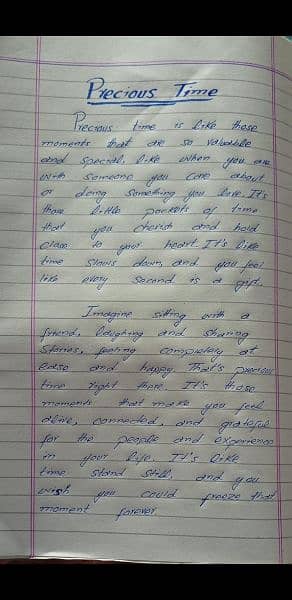 Precious Time
Precious time is like those
moments that are so valuable
and special, like when you are
with someone you care about
or doing something you love. It's
those little pockets of time
that you cherish and hold
close to your heart. It's like
time slows down, and you feel
like every second is a gift.
Imagine sitting with a
friend, laughing and sharing
stories, feeling completely at
ease and happy. That's precious
time right there. It's those
moments that make you feel
alive, connected, and grateful
for the people and experience
in your life. It's like
time stand still, and you
wish you could freeze that
moment forever.